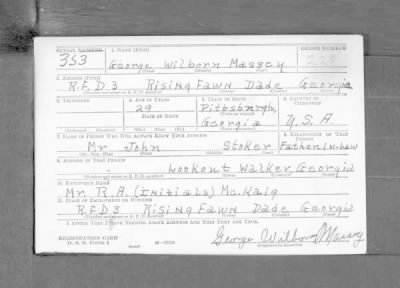 SERIAL NUMBER 1. NAME (Print) ORDER NUMBER
353 George Wilborn Massey
(First) (Middle) (Last)
2. ADDRESS (Print)
R.F.D 3 Rising Fawn Dade Georgia
3. TELEPHONE 4. AGE IN YEARS 5. PLACE OF BIRTH 6. COUNTRY OF CITIZENSHIP
29 Pittsburgh,
Georgia U.S.A
7. NAME OF PERSON WHO WILL ALWAYS KNOW YOUR ADDRESS 8. RELATIONSHIP OF THAT PERSON
Mr John Stoker Father in-law
9. ADDRESS OF THAT PERSON
Lookout Walker Georgia
10. EMPLOYER'S NAME
Mr. R.A. (Initials) Mc.Kaig
11. PLACE OF EMPLOYMENT OR BUSINESS
R.F.D 3 Rising Fawn Dade Georgia
I AFFIRM THAT I HAVE VERIFIED ABOVE ANSWERS AND THAT THEY ARE TRUE.
REGISTRATION CARD
D. S. S. Form 1 George Wilborn Massey